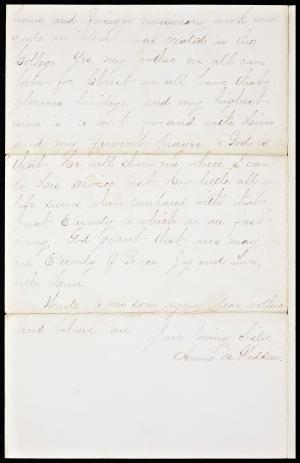 home and foreign missionary work and
quite an interest was created in the
College. Yes my brother, we all can
labor for Christ we all have that
glorious privilege and my highest
aim is to work for and with Him
and my fervent prayer to God is
that He will show me where I can
do Him service best. How little all our
life seems when compared with that
great Eternity, to which we are fast
going, God grant that ours may be
an Eternity of Peace Joy and Love,
with Him.
Write to me soon again, dear brother
and believe me
Your loving Sister
Annie M.